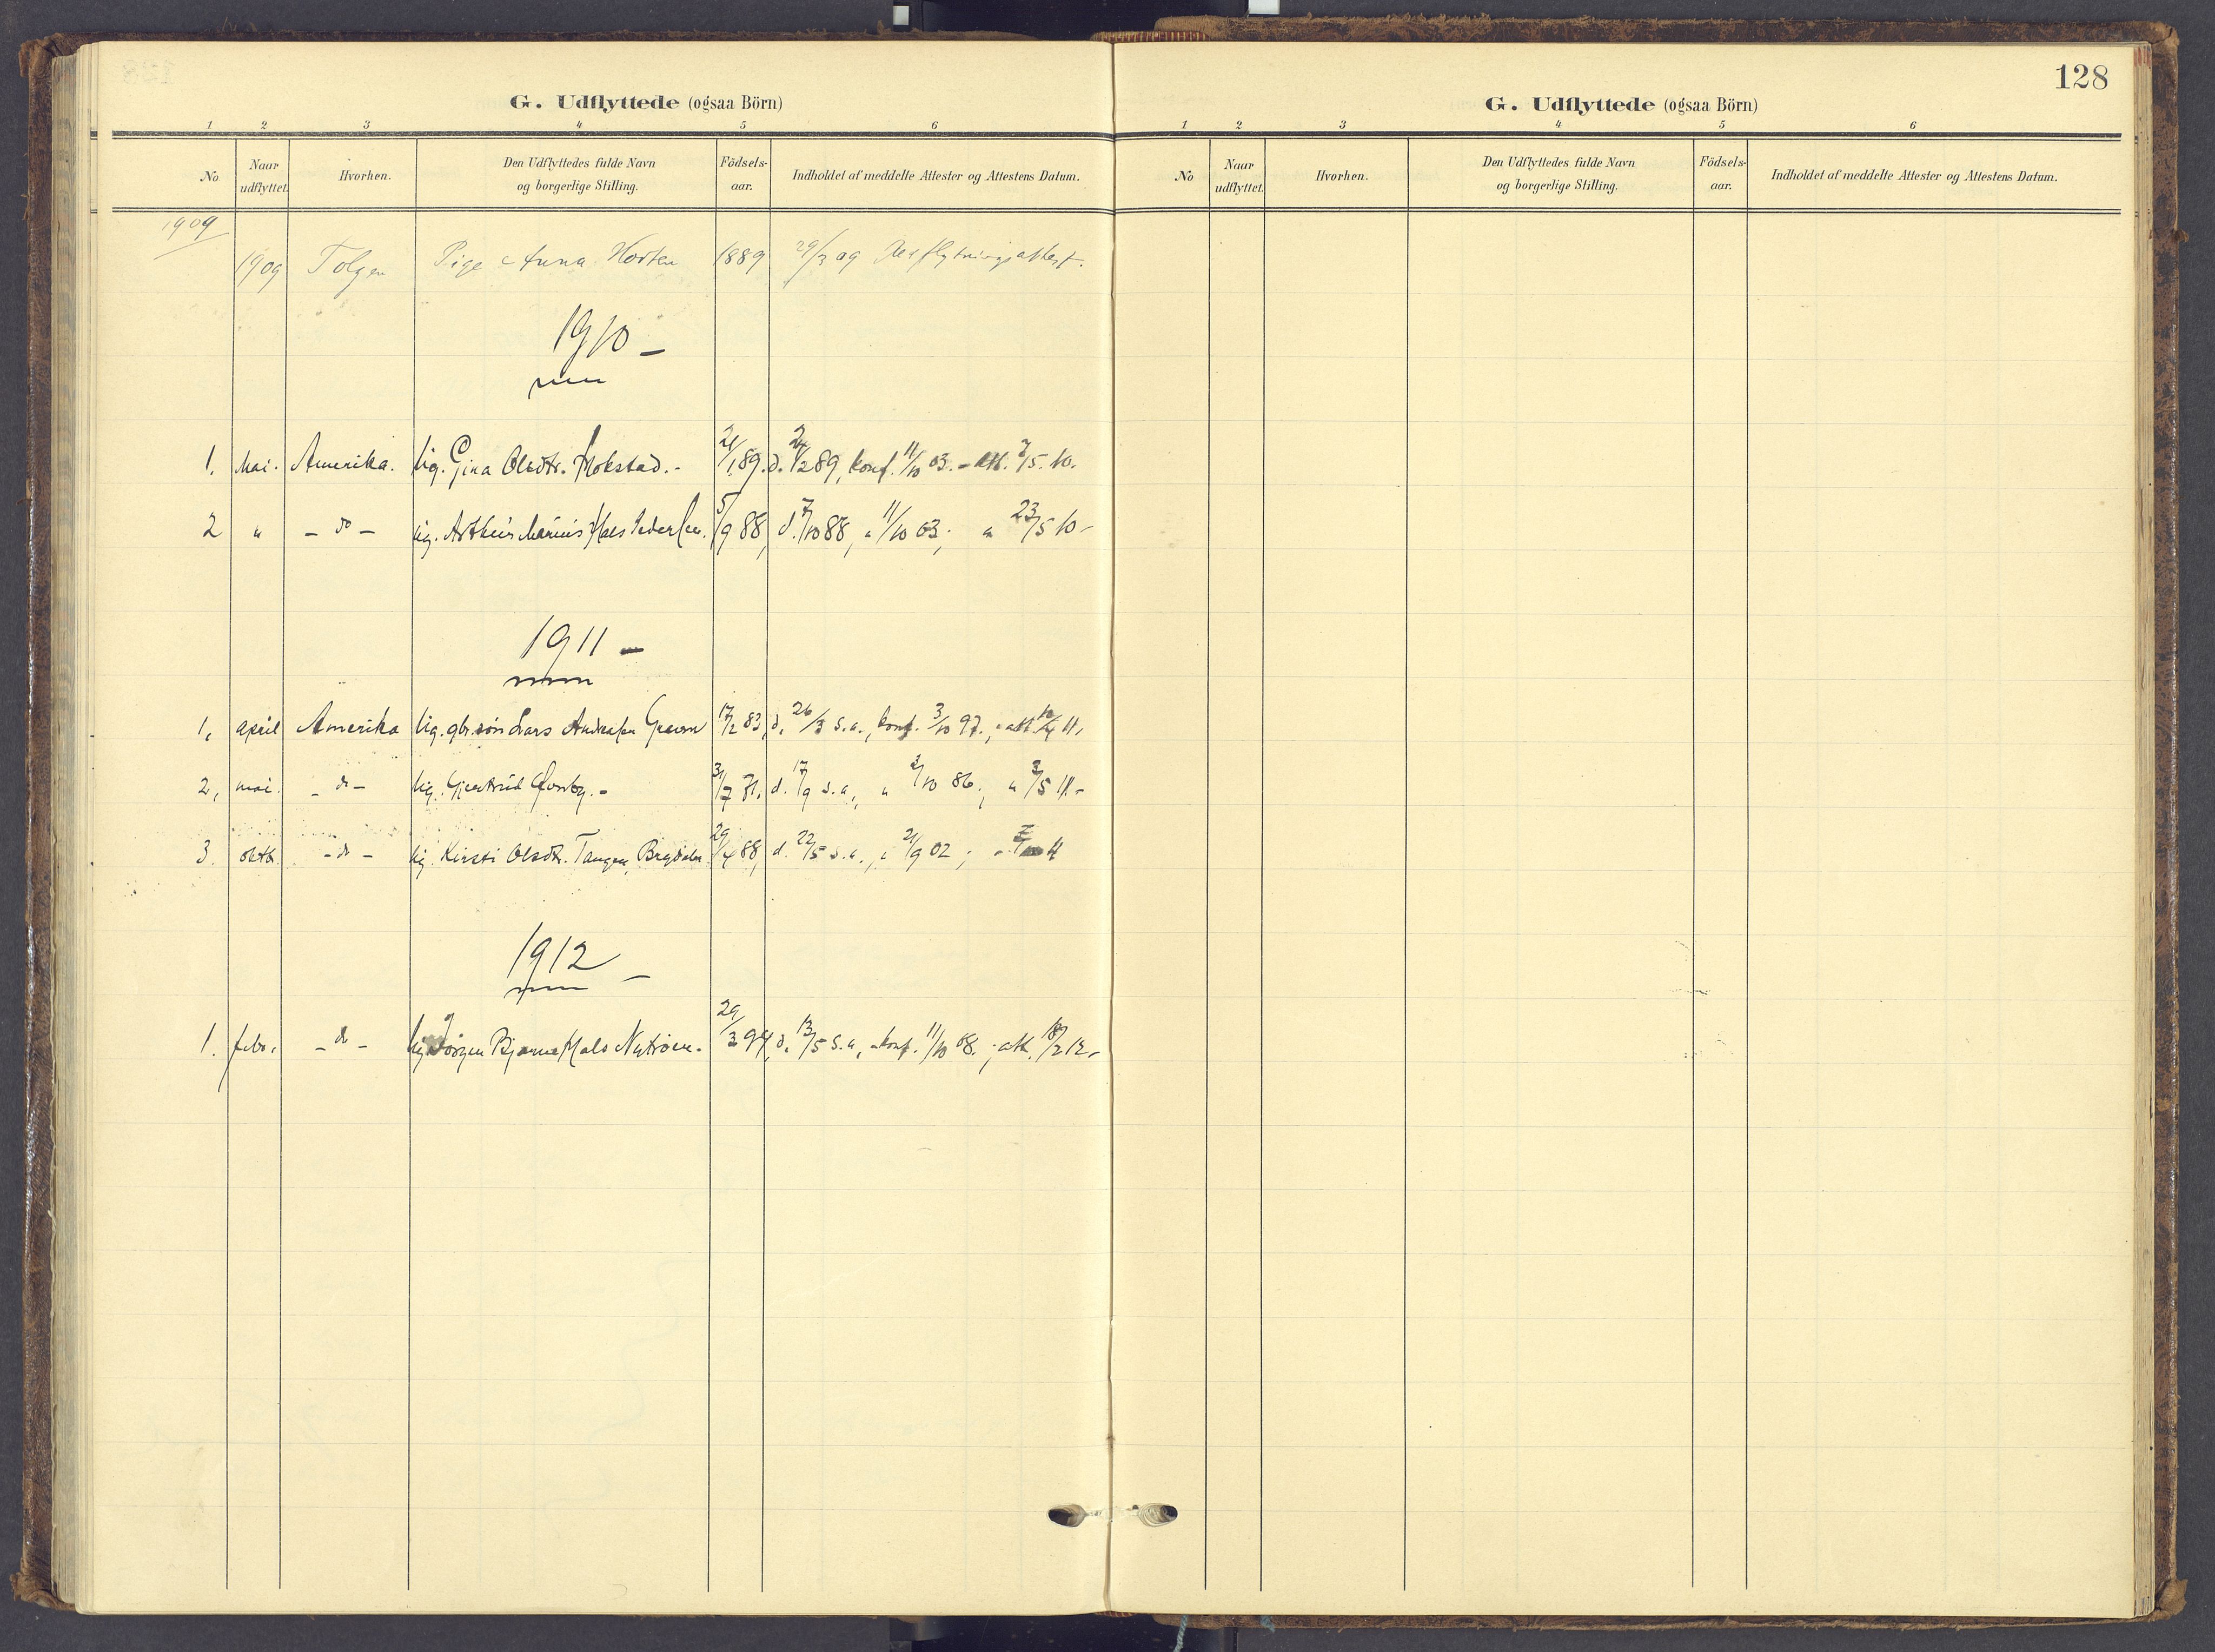 128
G. Udflyttede (ogsaa Börn)
1 2 3 4 5 6
No. Naar udflyttet. Hvorhen. Den Udflyttedes fulde Navn og borgerlige Stilling. Födsels-aar. Indholdet af meddelte Attester og Attestens Datum.
1909
1909 Tolgen Pige Anna Horten 1889 29/3 09
1910 –
1. Mai. Amerika. Ug. Gina Olsdtr. Mokstad. - 21/1 89. d. 24/2 89, konf. 11/10 03. - att. 7/5. 10.
2 " - do - ug. Marius 5/9 88, d. 7/10 88, " 11/10 03; " 23/5 10 -
1911 –
1, april Amerika Ug. gbr. søn Lars 17/2 83, d. 26/3 s.a., konf. 3/10 97., att.
2, mai. - do - Ug. d. 17/9 s.a., " 3/10 86; " 3/5 11. -
3. oktb. - do - ug. Kirsti Olsdtr. Tangen, 29/4 88, d. 22/5 s.a., " 21/9 02;
1912 –
1. febr. - do - ug. Jörgen Bjarne 29/3 94, d. 13/5 s.a., konf. 11/10 08.; att. 12 -
G. Udflyttede (ogsaa Börn)
1 2 3 4 5 6
No Naar udflyttet. Hvorhen. Den Udflyttedes fulde Navn og borgerlige Stilling. Födsels-aar. Indholdet af meddelte Attester og Attestens Datum.